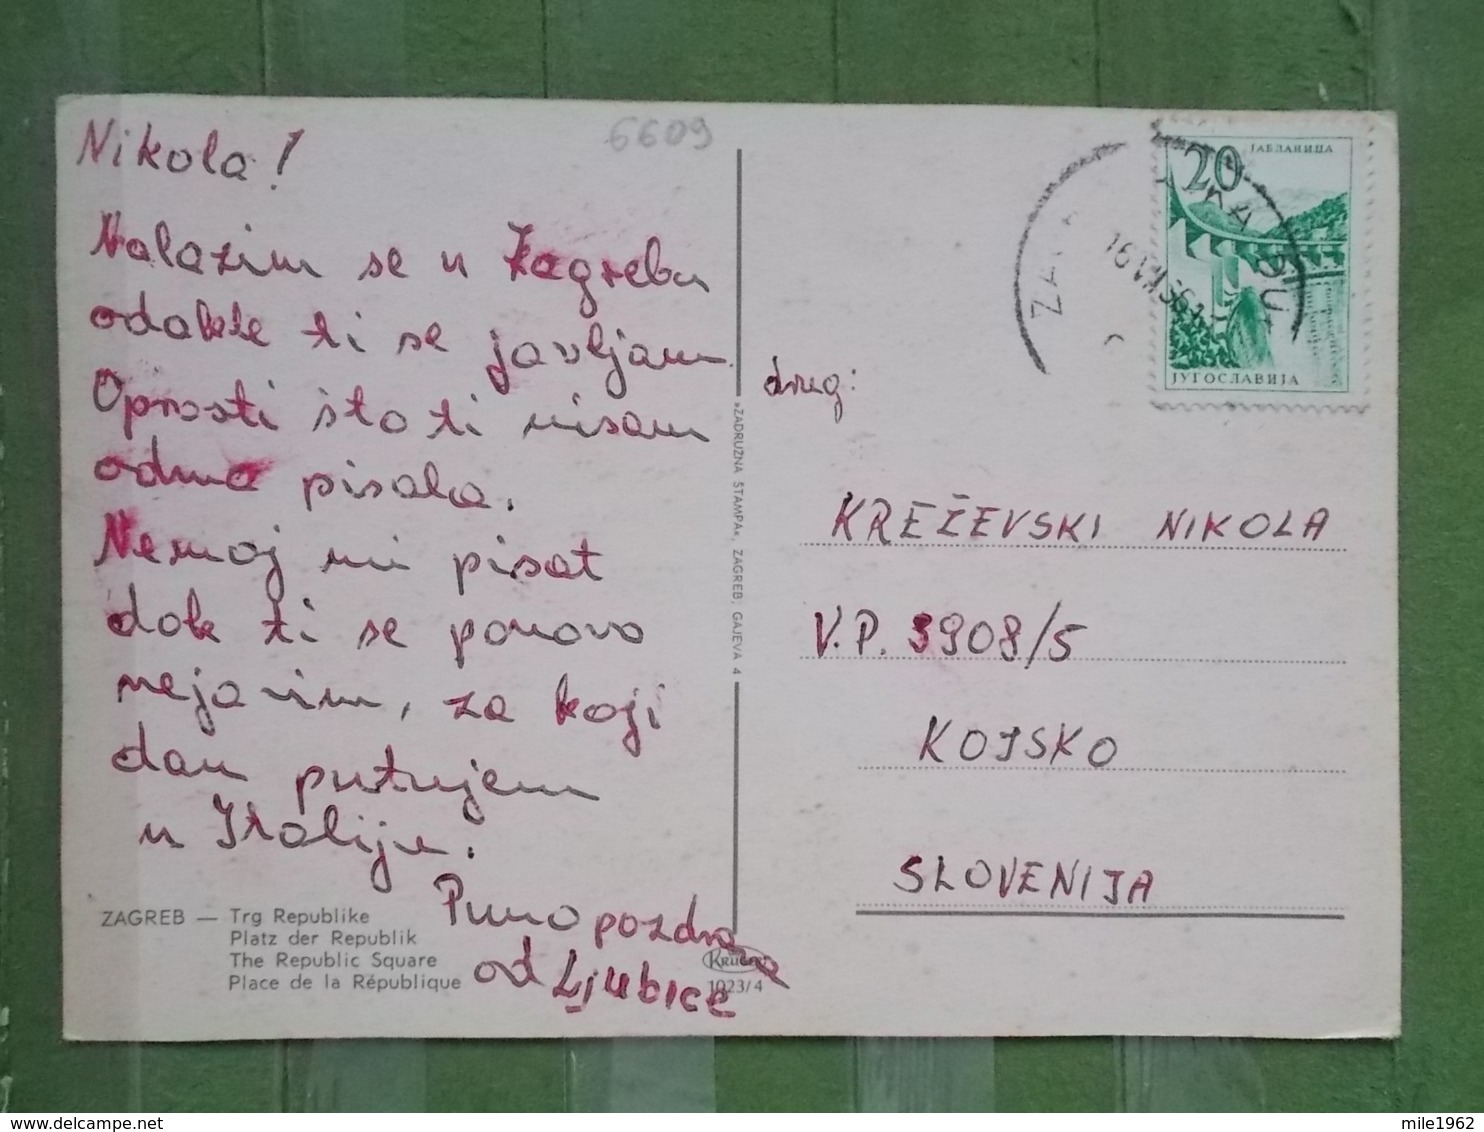 6609
Nikola!
Nalazim se u Zagrebu
odakle ti se javljam.
Oprosti što ti nisam
odma pisala.
Nemoj mi pisat
dok ti se ponovo
nejavim, za koji
dan putujem
u Italiju.
Puno pozdrava
od Ljubice
ZAGREB — Trg Republike
Platz der Republik
The Republic Square
Place de la République
»ZADRUŽNA ŠTAMPA«, ZAGREB, GAJEVA 4
1023/4
20
ЈАБЛАНИЦА
ЈУГОСЛАВИЈА
drug:
KREŽEVSKI NIKOLA
V.P. 3908/5
KOJSKO
SLOVENIJA
mile1962